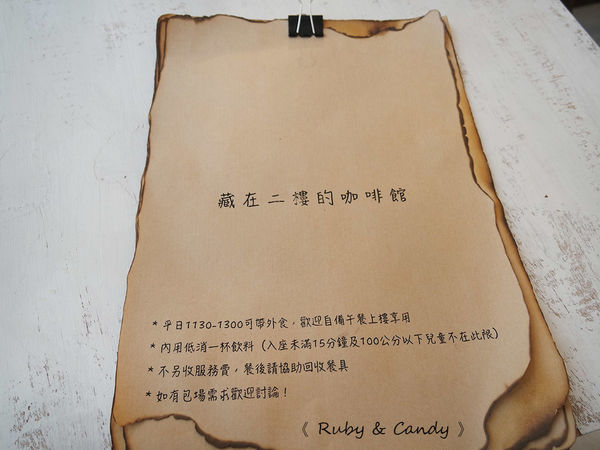 藏在二樓的咖啡館
* 平日1130-1300可帶外食，歡迎自備午餐上樓享用
* 內用低消一杯飲料 (入座未滿15分鐘及100公分以下兒童不在此限)
* 不另收服務費，餐後請協助回收餐具
* 如有包場需求歡迎討論！
《 Ruby & Candy 》